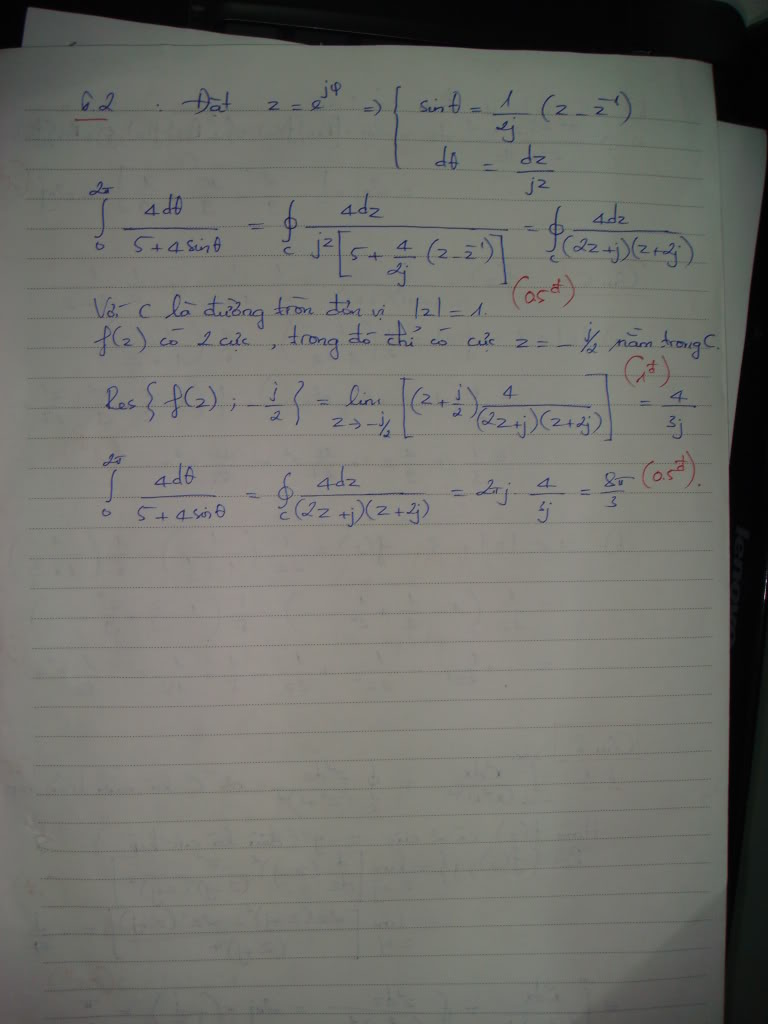 6.2 : Đặt z = e^{jφ} => { sinθ = 1/2j (z - z^{-1})
dθ = dz/jz
∫_0^{2π} 4dθ/(5+4sinθ) = ∮_C 4dz/(jz[5 + 4/2j (z - z^{-1})]) = ∮_C 4dz/((2z+j)(z+2j))
Với C là đường tròn đơn vị |z| = 1. (0.5đ)
f(z) có 2 cực, trong đó chỉ có cực z = -j/2 nằm trong C.
(1đ)
Res{f(z); -j/2} = lim_{z→-j/2} [(z + j/2) 4/((2z+j)(z+2j))] = 4/3j
∫_0^{2π} 4dθ/(5+4sinθ) = ∮_C 4dz/((2z+j)(z+2j)) = 2πj · 4/3j = 8π/3 (0.5đ).
lenovo